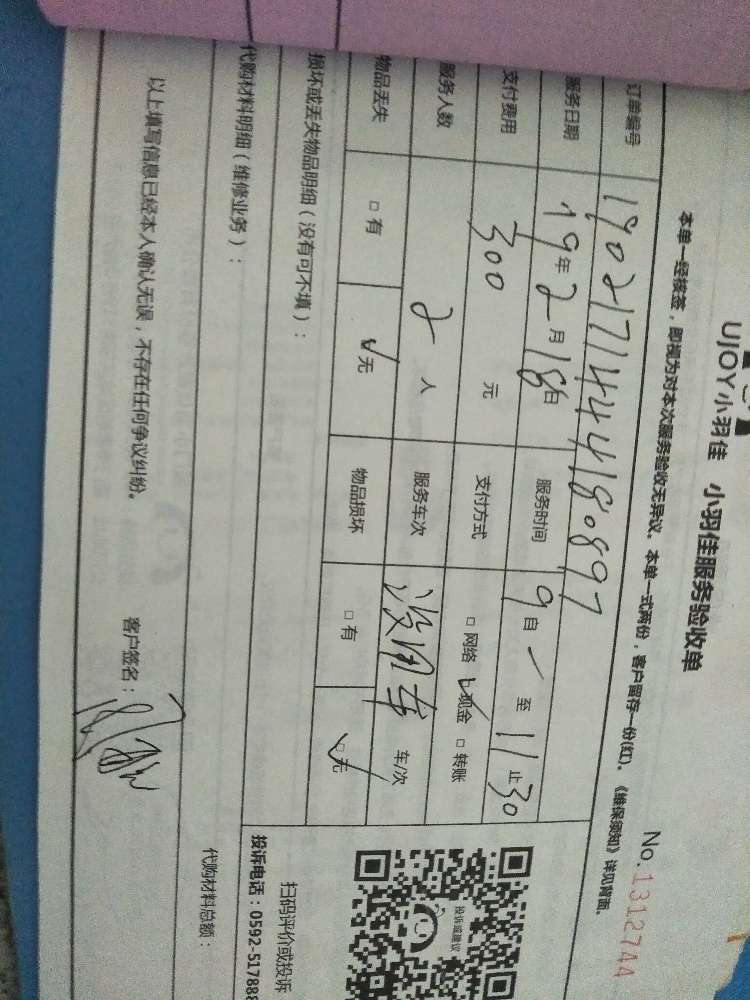 UJOY小羽佳 小羽佳服务验收单
No.1312744
本单一经接签，即视为对本次服务验收无异议。本单一式两份，客户留存一份(红)。《维保须知》详见背面。
订单编号 1902171444180897
服务日期 19年2月18日 服务时间 9自 至11止30
支付费用 300 元 支付方式 □网络 ☑现金 □转账
服务人数 2 人 服务车次 没用车 车/次
物品丢失 □有 ☑无 物品损坏 □有 ☑无
损坏或丢失物品明细（没有可不填）：
代购材料明细（维修业务）： 代购材料总额：
以上填写信息已经本人确认无误，不存在任何争议纠纷。 客户签名：
投诉或建议
扫码评价或投诉
投诉电话：0592-517888